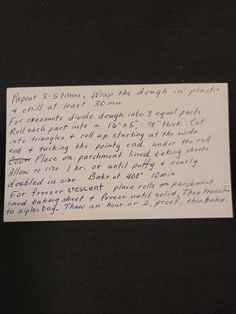 Repeat 3-5 times. Wrap the dough in plastic
& chill at least 30 min
For creasants divide dough into 3 equal parts.
Roll each part into a 16" x 5", 1/8" thick. Cut
into triangles & roll up starting at the wide
end & tucking the pointy end under the roll.
Place on parchment lined baking sheets.
Allow to rise 1 hr. or until puffy & nearly
doubled in size Bake at 400° 10 min
For freezer crescent place rolls on parchment
lined baking sheet & freeze until solid. Then transfer
to ziplec bag. Thaw an hour or 2, proof, then bake.